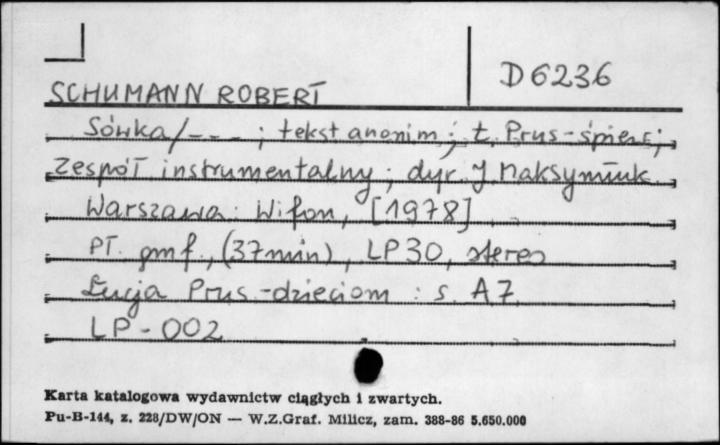 D6236
SCHUMANN ROBERT
Sówka/--- ; tekst anonim; Ł. Prus-śpiew;
zespół instrumentalny; dyr. J. Maksymiuk
Warszawa: Wifon, [1978]
Pł. gmf., (37min), LP30, stereo
Łucja Prus-dzieciom : s. A7
LP-002
Karta katalogowa wydawnictw ciągłych i zwartych.
Pu-B-144, z. 228/DW/ON — W.Z.Graf. Milicz, zam. 388-86 5.650.000